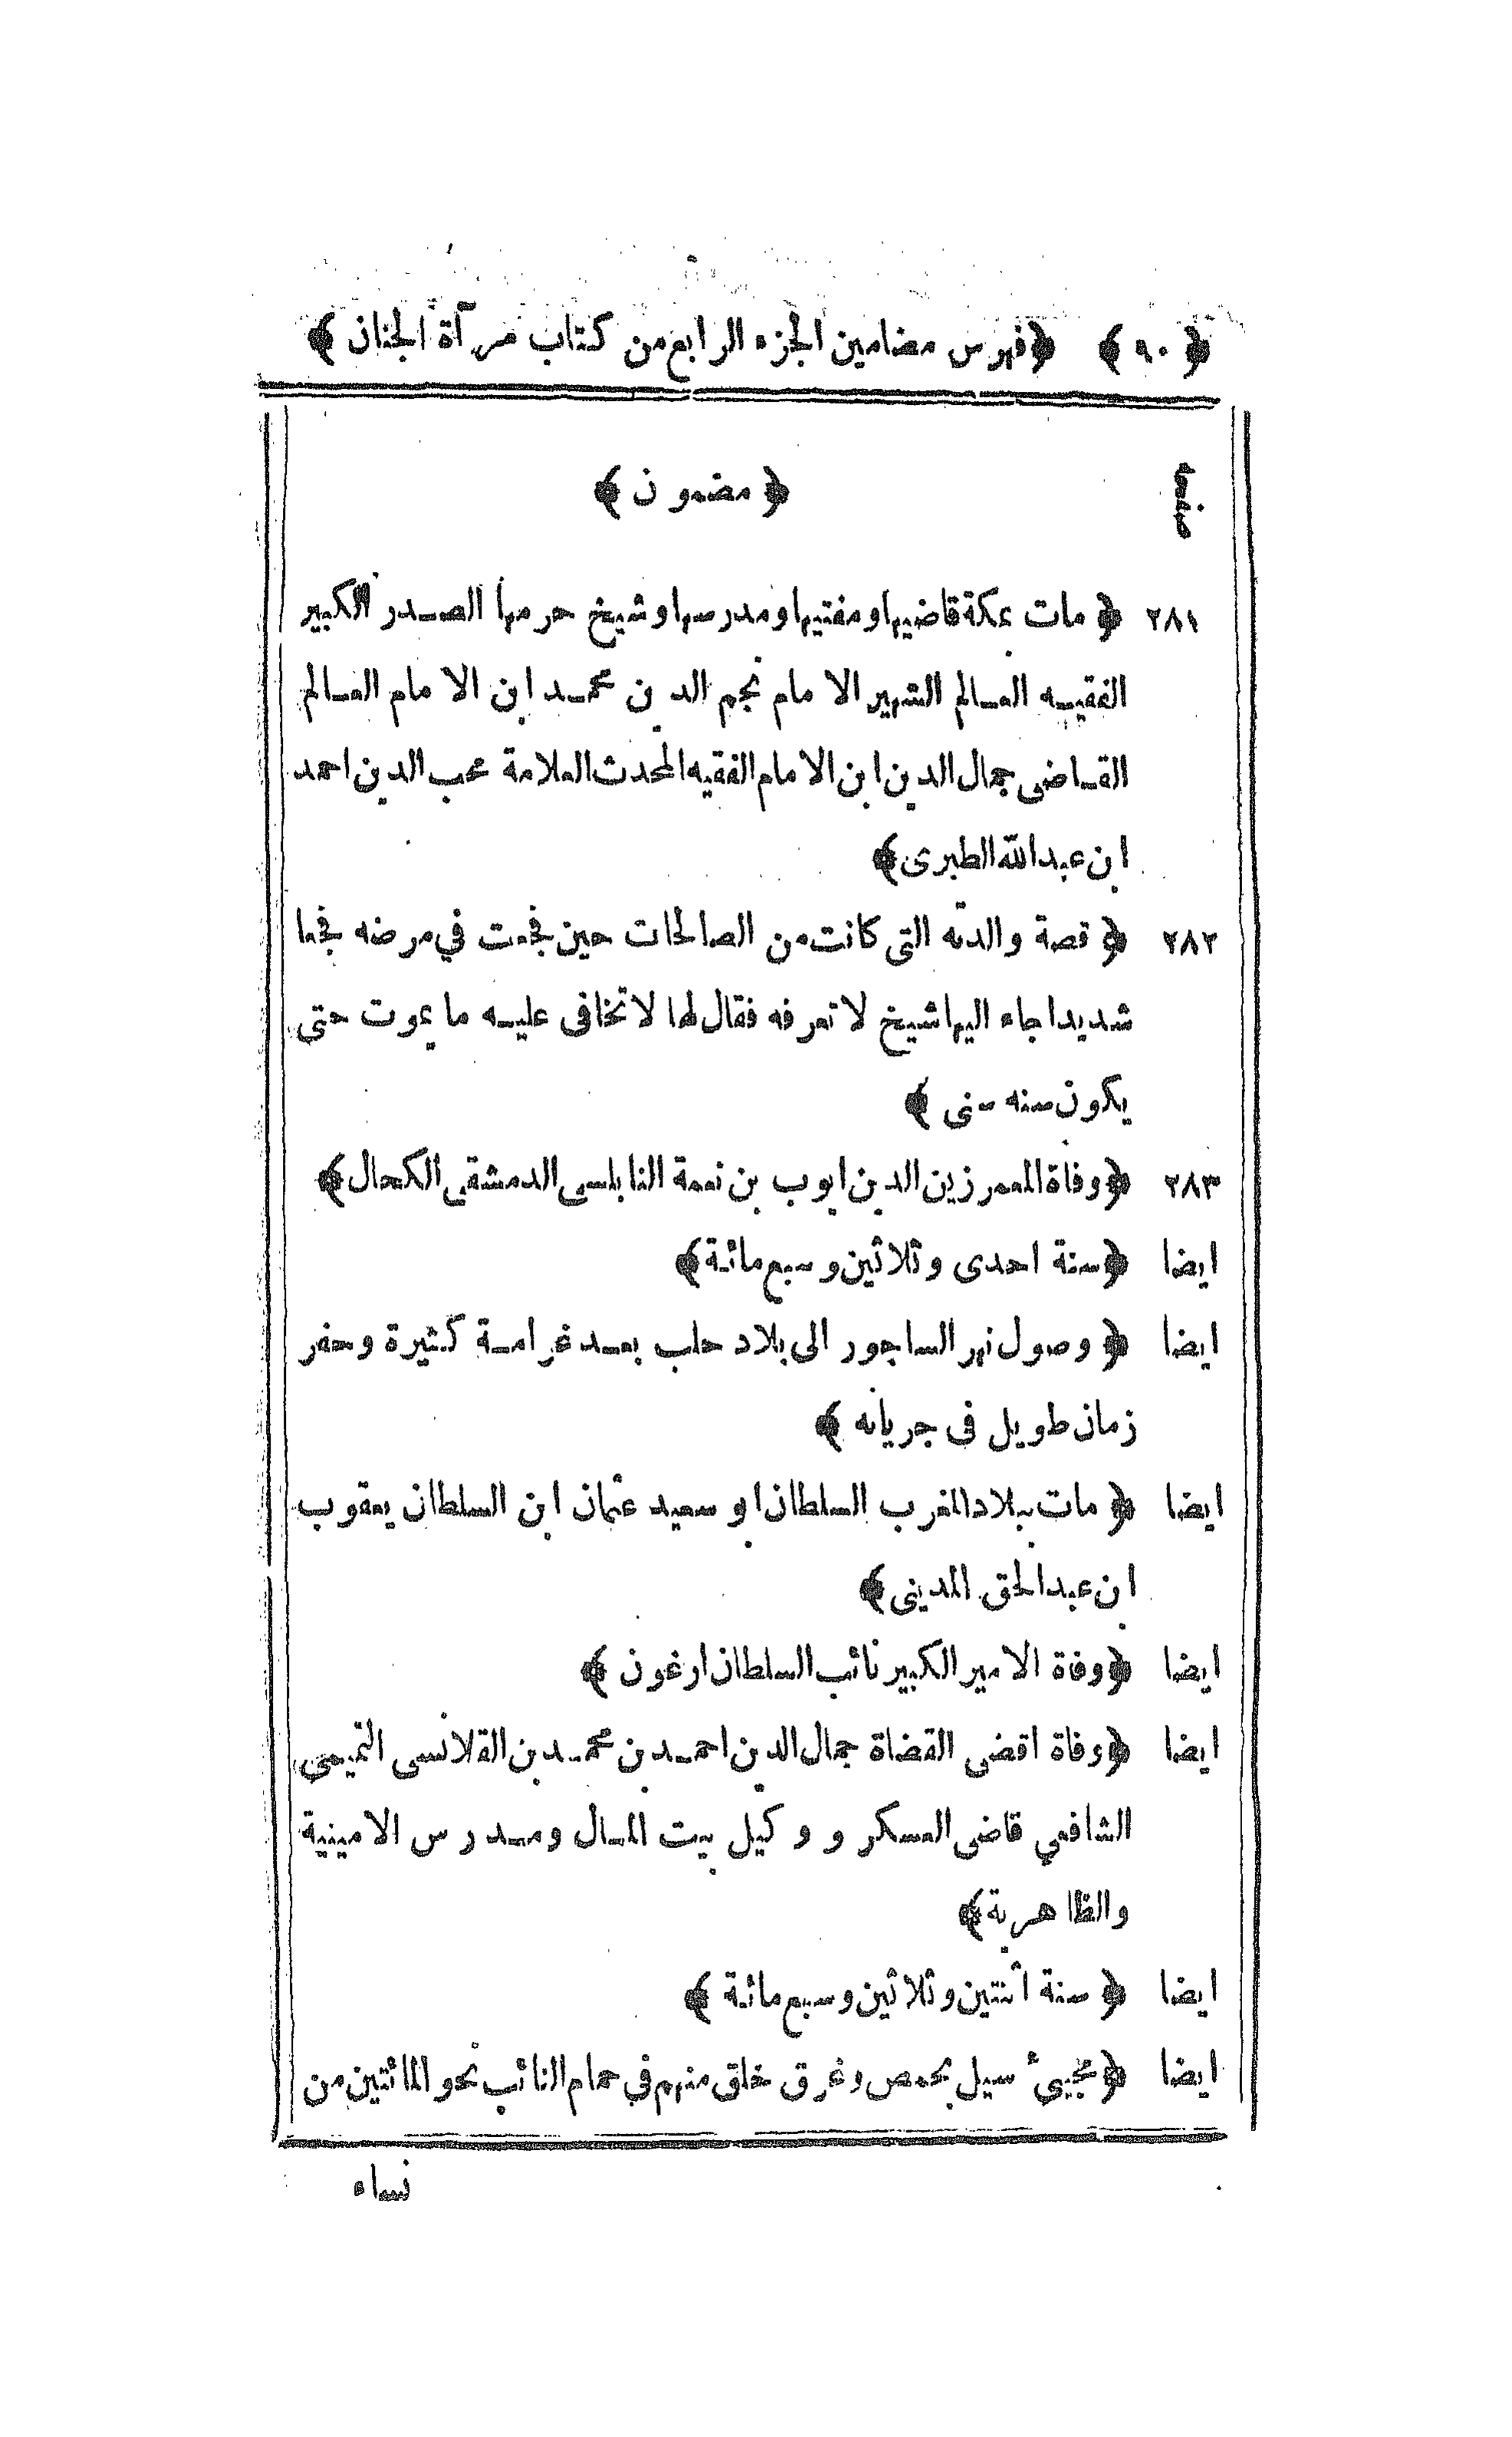 ﴿ ٩٠ ﴾ ﴿ فهرس مضامين الجزء الرابع من كتاب مرآة الجنان ﴾
صفحه ﴿ مضمون ﴾
٢٨١ ﴿ مات بمكة قاضيها ومفتيها ومدرسها وشيخ حرمها الصدر الكبير
الفقيه العالم الشهير الامام نجم الدين محمد ابن الامام العالم
القاضى جمال الدين ابن الامام الفقيه المحدث العلامة محب الدين احمد
ابن عبد الله الطبرى ﴾
٢٨٢ ﴿ قصة والدته التى كانت من الصالحات حين فجمت في مرضه فجعا
شديدا جاء اليها شيخ لا تعرفه فقال لها لا تخافى عليه ما يموت حتى
يكون سنه سنى ﴾
٢٨٣ ﴿ وفاة المعمر زين الدين ايوب بن نعمة النابلسى الدمشقى الكحال ﴾
ايضا ﴿ سنة احدى وثلاثين وسبع مائة ﴾
ايضا ﴿ وصول نهر الساجور الى بلاد حلب بعد غرامة كثيرة وحفر
زمان طويل فى جريانه ﴾
ايضا ﴿ مات ببلاد المغرب السلطان ابو سعيد عثمان ابن السلطان يعقوب
ابن عبد الحق المدينى ﴾
ايضا ﴿ وفاة الامير الكبير نائب السلطان ارغون ﴾
ايضا ﴿ وفاة اقضى القضاة جمال الدين احمد بن محمد بن القلانسى التميمى
الشافعي قاضى العسكر و وكيل بيت المال ومدرس الامينية
والظاهرية ﴾
ايضا ﴿ سنة اثنتين وثلاثين وسبع مائة ﴾
ايضا ﴿ مجيئ سيل بحمص وغرق خلق منهم في حمام النائب نحو المائتين من
نساء